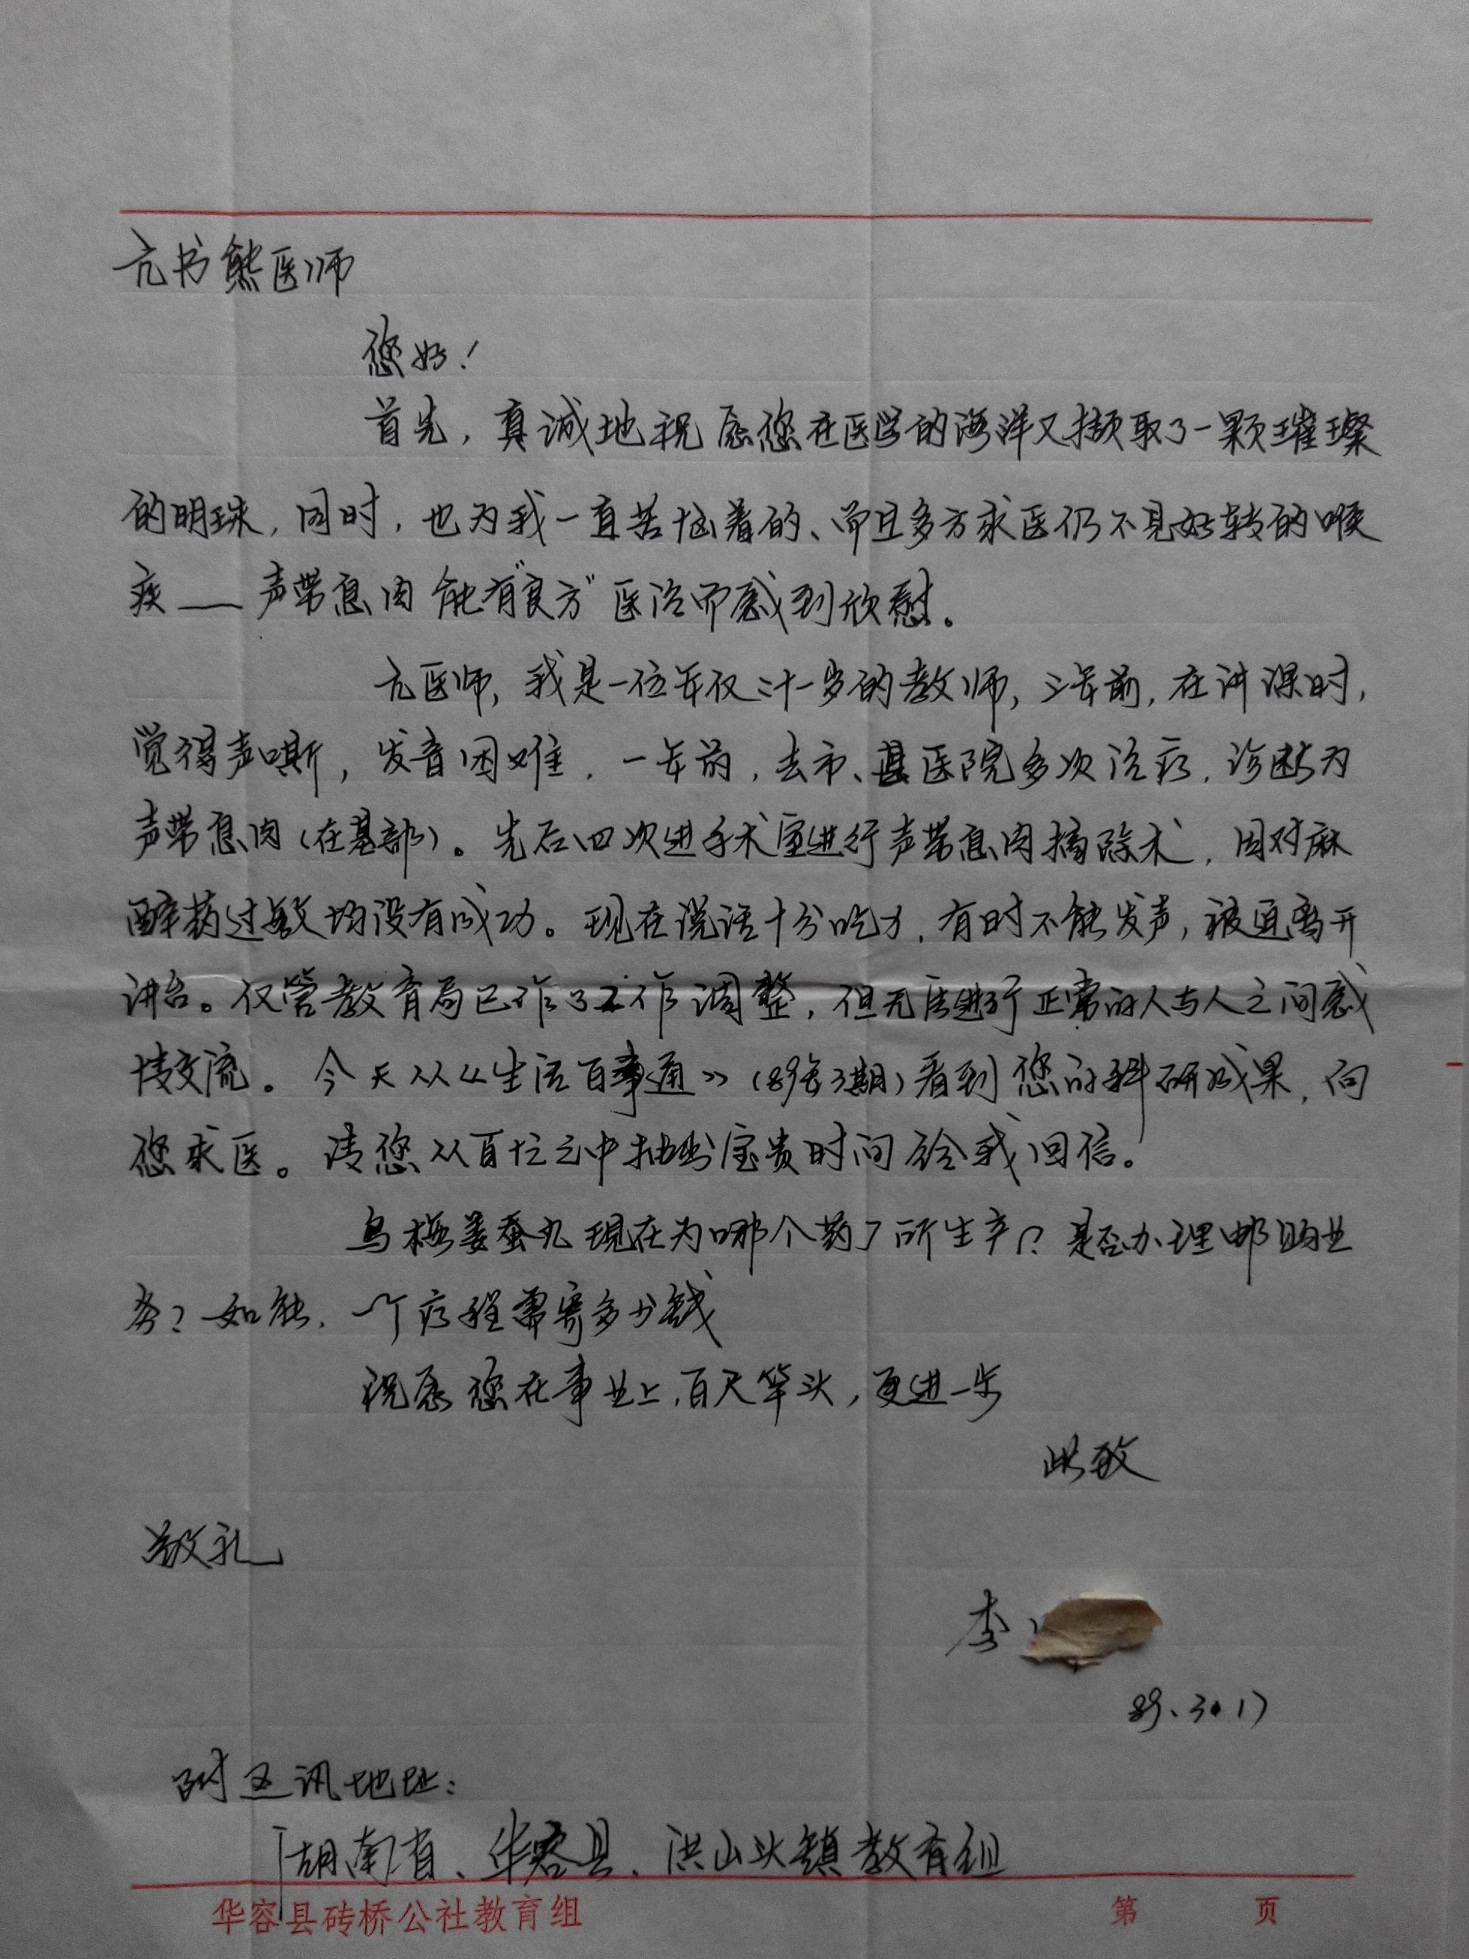 亢书熊医师
您好！
首先，真诚地祝愿您在医学的海洋又撷取了一颗璀璨
的明珠，同时，也为我一直苦恼着的、而且多方求医仍不见好转的喉
疾——声带息肉能有“良方”医治而感到欣慰。
亢医师，我是一位年仅二十一岁的教师，三年前，在讲课时，
觉得声嘶，发音困难，一年前，去市、县医院多次治疗，诊断为
声带息肉（在基部）。先后四次进手术室进行声带息肉摘除术，因对麻
醉药过敏均没有成功。现在说话十分吃力，有时不能发声，被迫离开
讲台。仅管教育局已作了工作调整，但无法进行正常的人与人之间感
情交流。今天从《生活百事通》（89年3期）看到您的科研成果，向
您求医。请您从百忙之中抽出宝贵时间给我回信。
乌梅姜蚕丸现在为哪个药厂所生产？是否办理邮购业
务？如能，一个疗程需寄多少钱
祝愿您在事业上，百尺竿头，更进一步
此致
敬礼
李
89.3.17
附通讯地址：
湖南省、华容县、洪山头镇教育组
华容县砖桥公社教育组 第 页